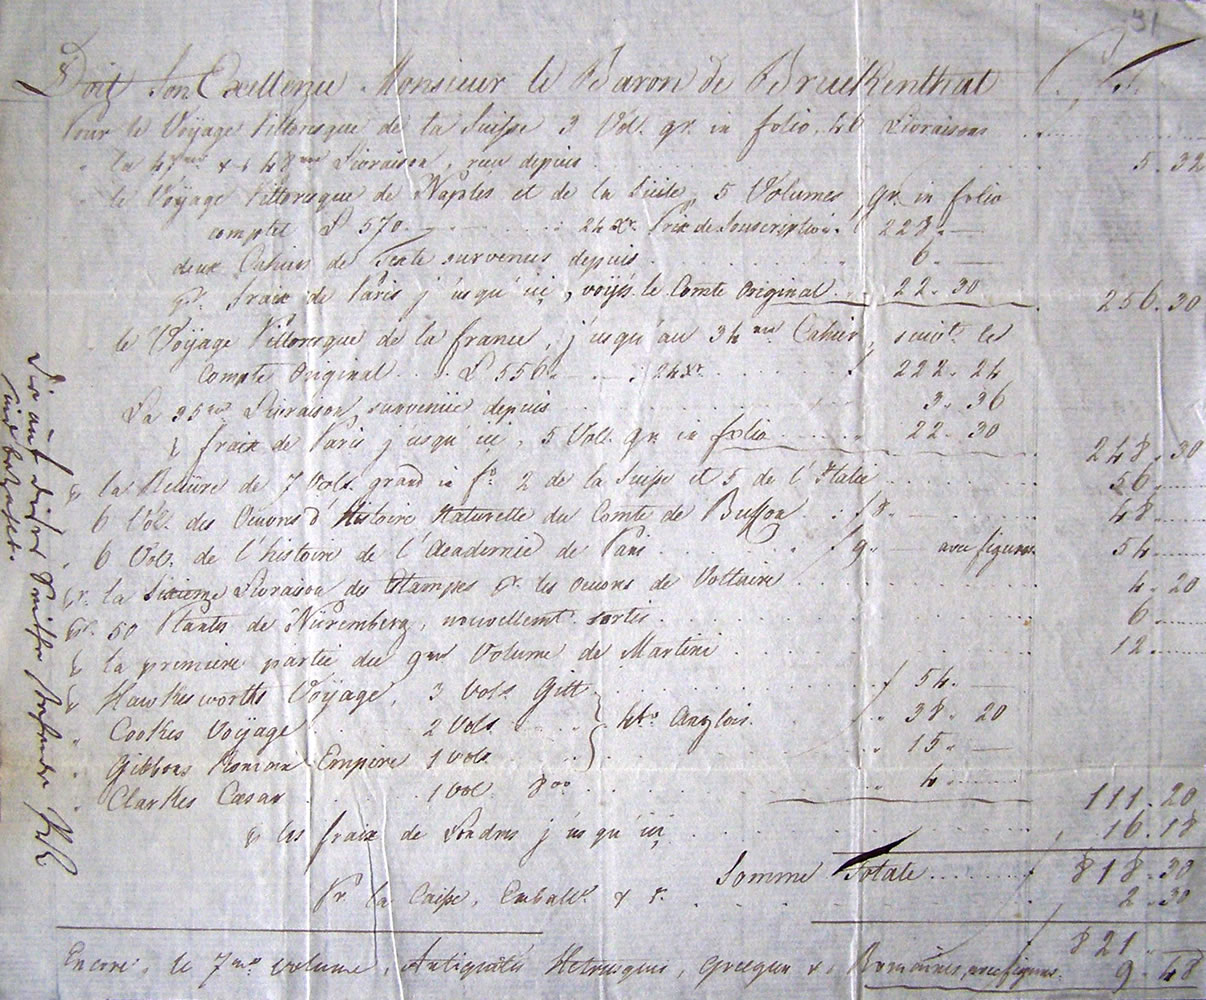 31
Doit Son Exellence Monsieur le Baron de Bruckenthal
Pour le Voyage Pittoresque de la Suisse 3 Vol. gr. in folio, 46 Livraisons
la 47me & 48me Livraison, reçu depuis 5. 32
le Voyage Pittoresque de Naples et de la Sicile, 5 Volumes, gr. in folio
complet L 570. 24 Xr. Prix de Souscription. 228. —
deux Cahiers de Texte survenus depuis 6. —
pr. fraix de Paris j'usqu'ici, voyés le Comte Original 22. 30 256. 30
le Voyage Pittoresque de la france, j'usqu'au 34me Cahier, suivt. les
Compte Original L 556. 24 Xr. f 222. 24
La 35me Livraison, survenüe depuis 3. 36
fraix de Paris j'usqu'ici, 5 Vol. gr. in folio 22. 30 248. 30
la Reliüre de 7 Vols. grand in fo. 2 de la Suisse et 5 de l'Italie 56
6 Vol. des Oeuvres d'Histoire Naturelle du Comte de Buffon f 8. — 48
6 Vol. de l'histoire de l'Academie de Paris f 9. — avec figures. 54
pr. la Sixieme Livraison des Estampes pr. les oeuvres de Voltaire 4. 20
pr. 50 Plantes de Nüremberg, nouvellemt. sortis 6
la premiere partie du 9me Volume de Martini 12
Hawkesworths Voyage, 3 Vols. Gitt f 54. —
Cookes Voyage 2 Vols. 4to. Anglois. 38. 20
Gibbons Roman Empire 1 Vol. 15. —
Clarkes Cæsar 1 Vol. 8vo 4 111. 20
les fraix de Londres j'usqu'ici, 16. 18
Somme Totale f 818. 30
Pr la Caisse, Emball. & c. 2. 30
f 821
Encore, le 7me volume, Antiquités Hetrusques, Grecques & Romaines, avec figures. 9. 48
Die auf dieser
sind bezahlet.